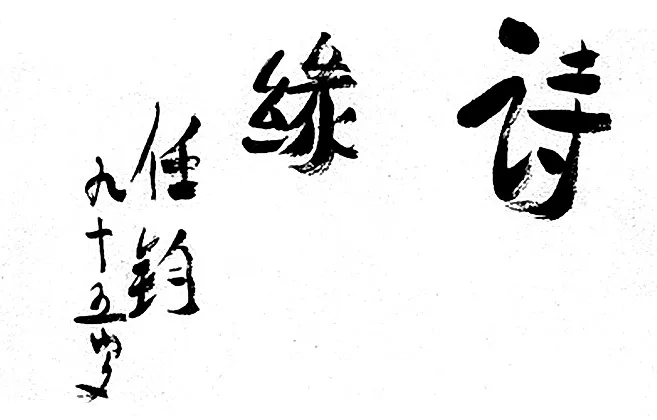 诗缘
任钧
九十五岁